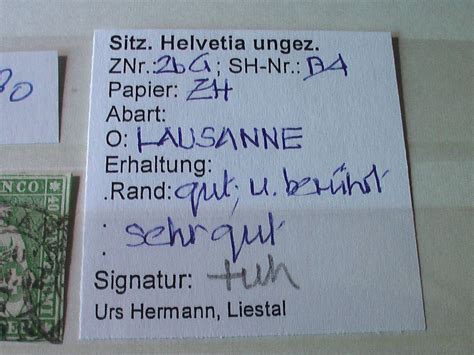 Sitz. Helvetia ungez.
ZNr.: 26G; SH-Nr.: B4
Papier: ZH
Abart:
O: LAUSANNE
Erhaltung:
.Rand: gut, u. berührt
: sehr gut
Signatur:
Urs Hermann, Liestal
ANCO